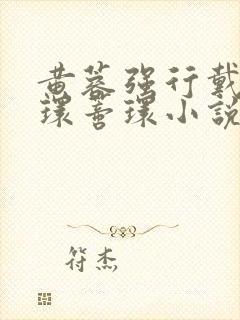 黄蓉强行戴
环蒂环小说
符杰